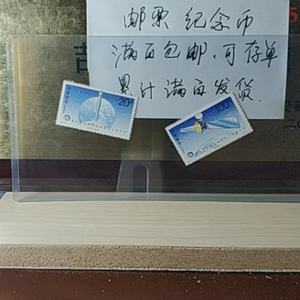 邮票 纪念币
满百包邮.可存单
累计满百发货.
吉
20